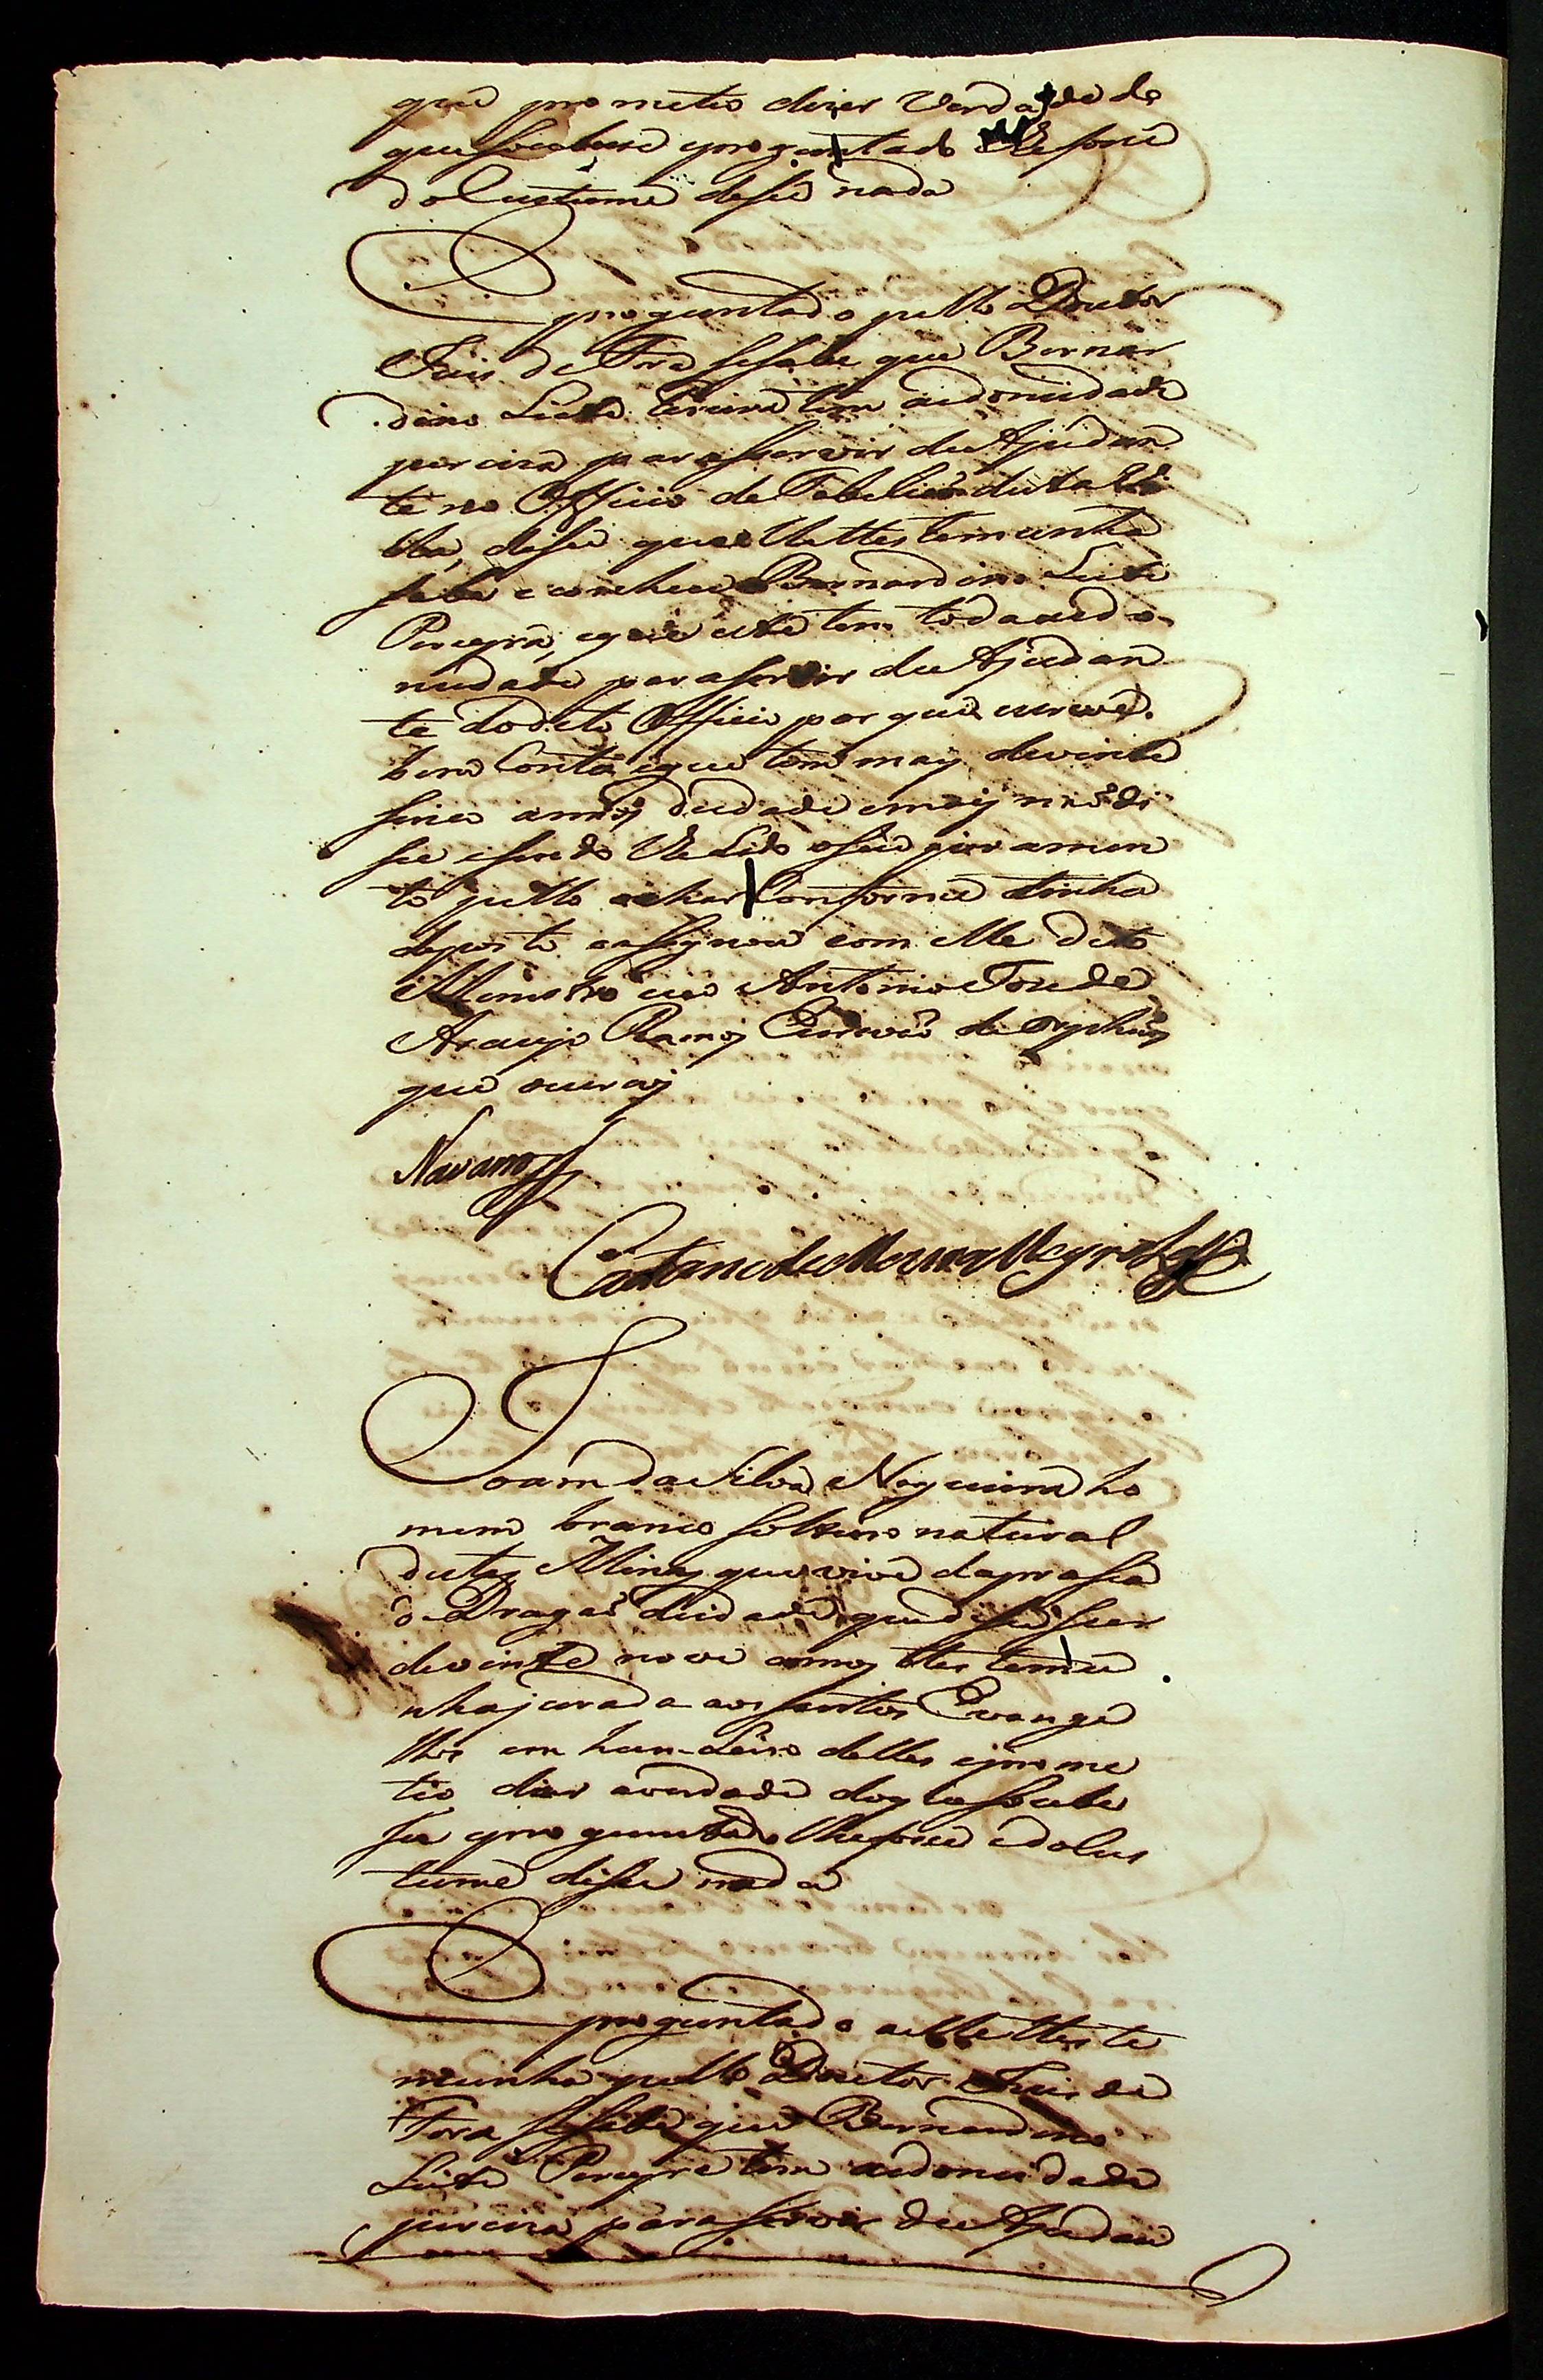 que prometeo dizer Verdade do
que soubese epreguntado lhefose e
do Custume dise nada
E preguntado pello Doutor
Juis de Fora sesabe que Bernar
dino Leite Pereira tem aidoneidade
perciza para servir de Ajudan
te no Officio de Tabeliam desta Vi
lla, dise que elle testemunha
sabe e conhece Bernardino Leite
Pereyra, eque este tem toda aido
neidade para servir de Ajudan
te do dito Officio por que escreve
bem Conta eque tem mais de vinte
sinco annos deidade emais não di
se esendo lhe Lido oseu juramen
to pello achar Conforme tinha
deposto oasignou com elle dito
Menistro eu Antonio Joze de
Araujo Ramos Escrivão de orphãos
que escrevy
Navarro
Caetano de Moura Negrão
Joam da Silva Nogueira ho
mem branco solteiro natural
destas Minas que vive da prasa
de Dragão deidade que dise ser
de vinte nove annos testemu
nha jurada aos santos Evange
lhos em hum Livro delles eprome
teo dizer averdade do que soube
se epreguntado lhefose edo Cus
tume dise nada
E preguntado aelle teste
munha pello Doutor Juis de
Fora sesabe que Bernardino
Leite Pereyra tem aidoneidade
perciza para servir de Ajudan